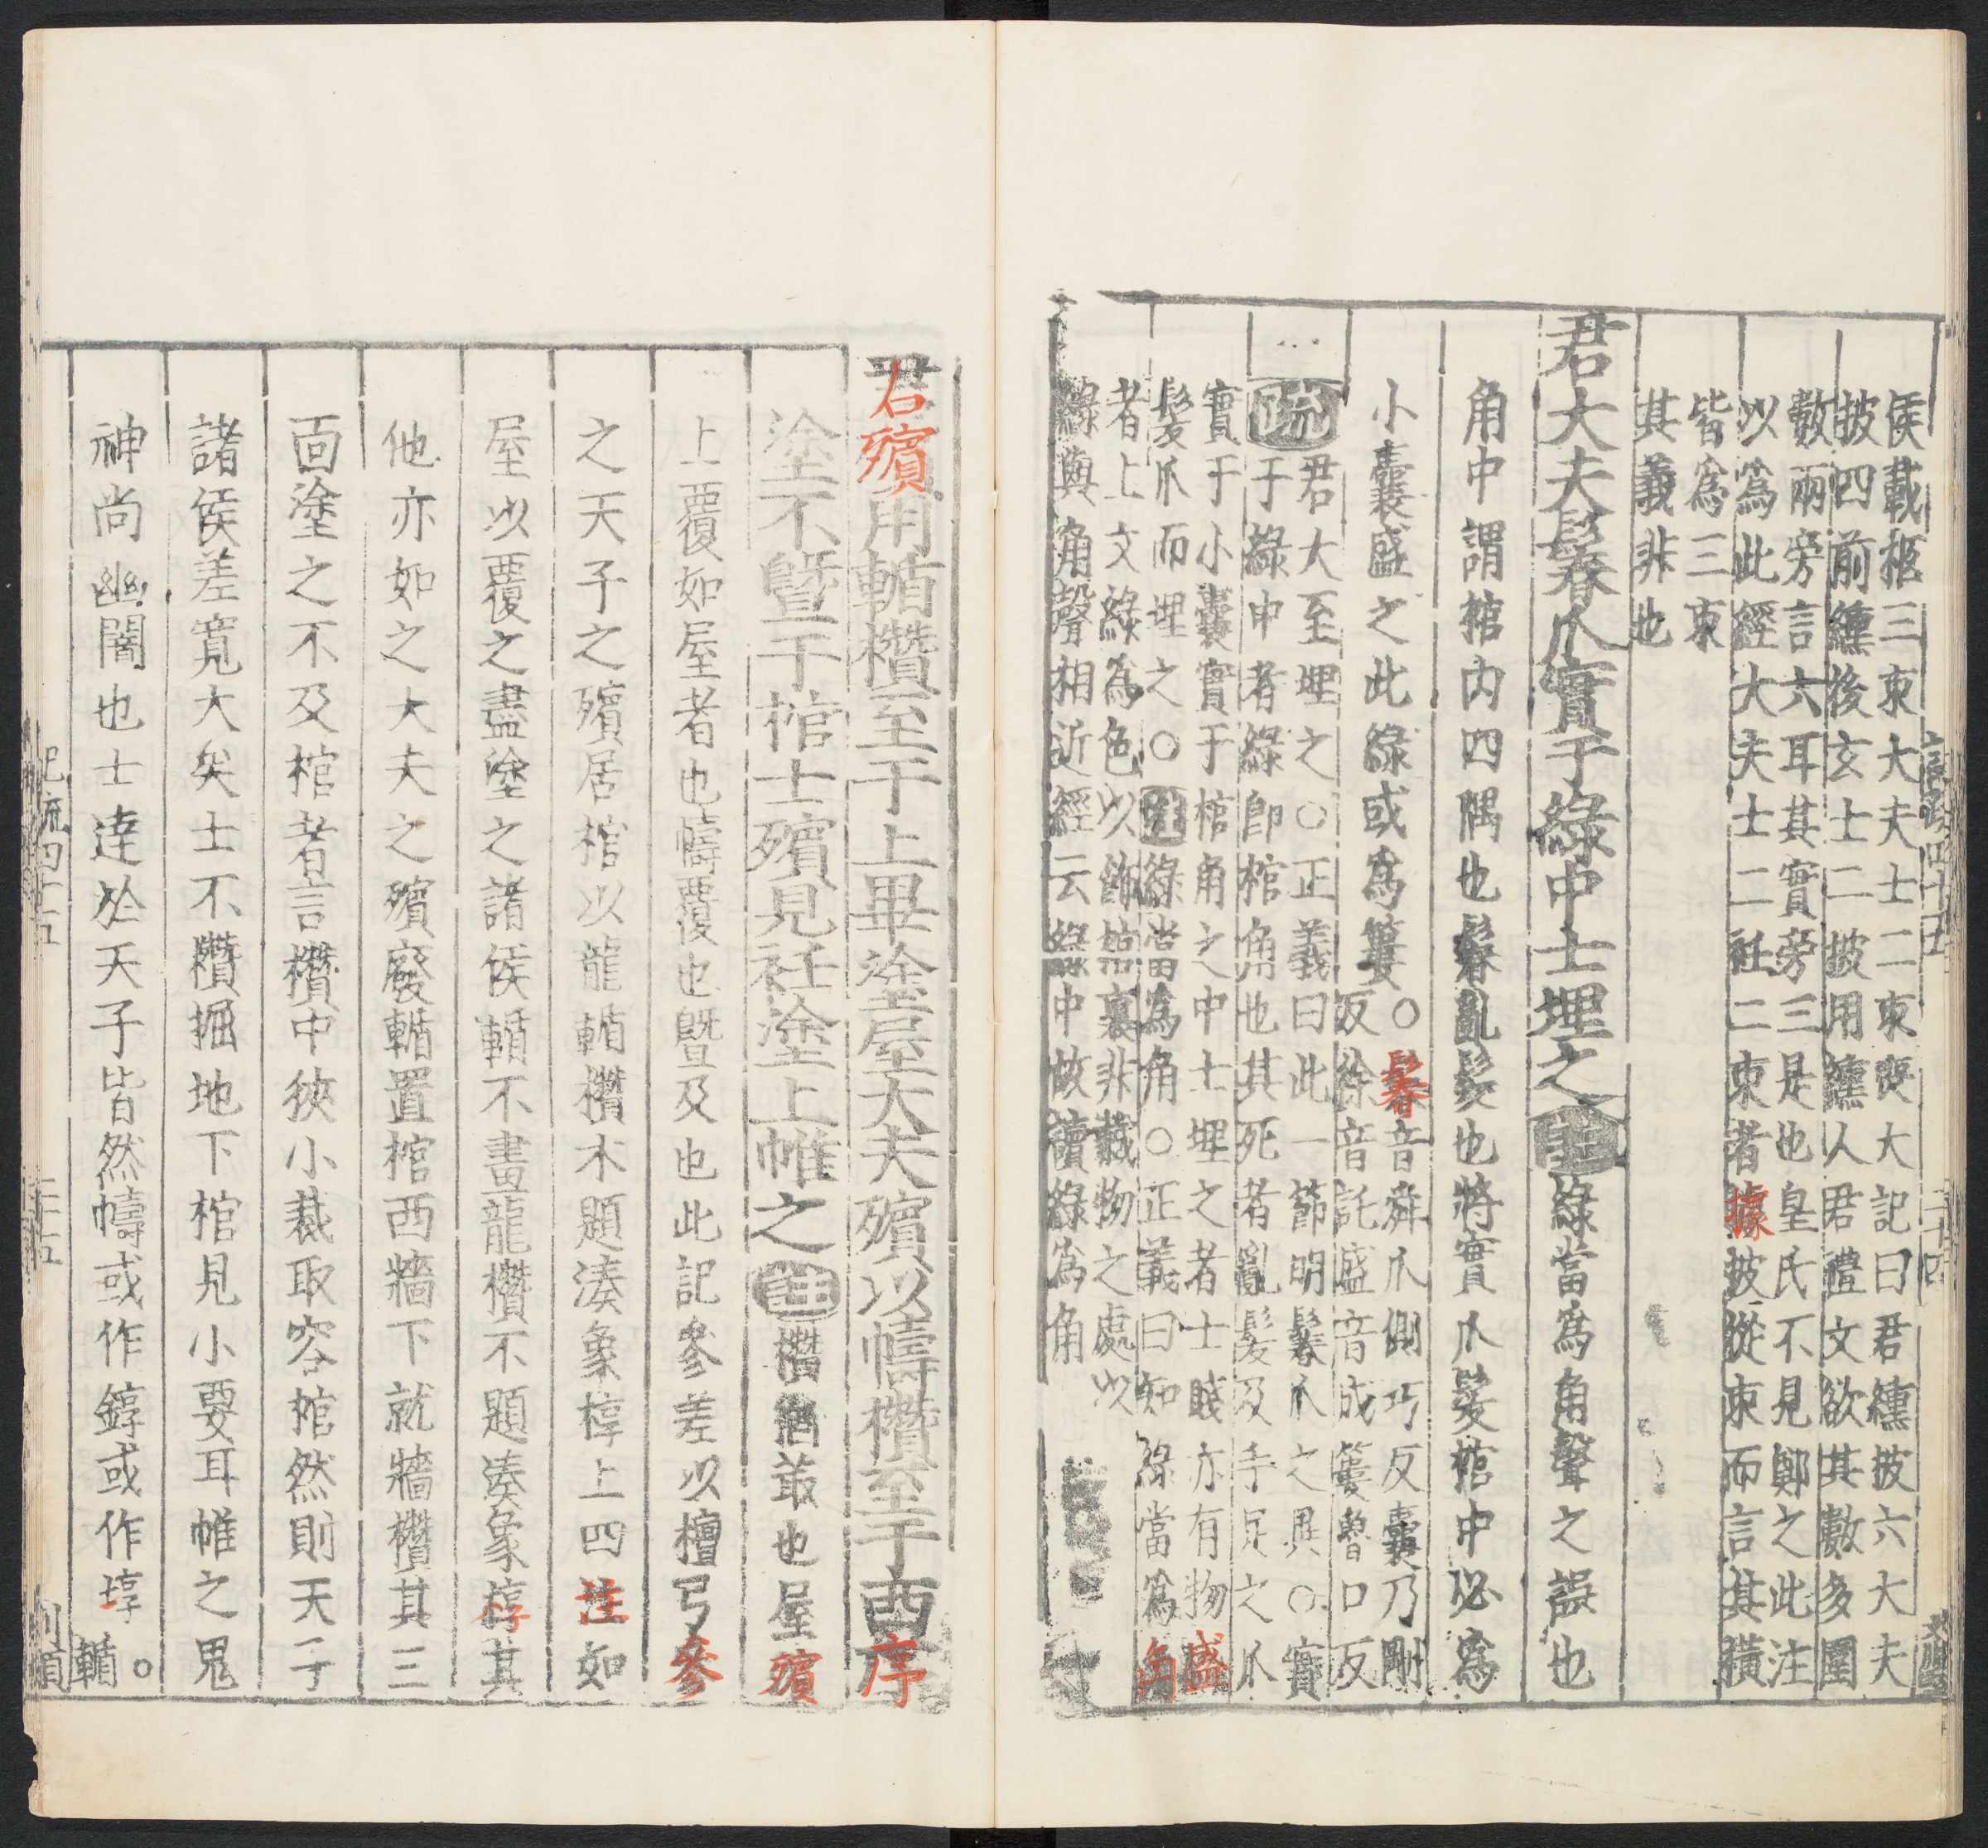 侯載柩三束大夫士二束喪大記曰君纁披六大夫
披四前纁後玄士二披用纁人君禮文欲其數多圍
數兩旁言六耳其實旁三是也皇氏不見鄭之此注
以爲此經大夫士二衽二束者據披從束而言其橫
皆爲三束
其義非也
君大夫鬊爪實于綠中士埋之注綠當爲角聲之誤也
角中謂棺內四隅也鬊亂髮也將實爪髮棺中必爲
小囊盛之此綠或爲簍○鬊音舜爪側巧反囊乃剛
反徐音託盛音成簍魯口反
疏君大至埋之○正義曰此一節明鬊爪之異○實
于綠中者綠即棺角也其死者亂髮及手足之爪
實于小囊實于棺角之中士埋之者士賤亦有物盛
髮爪而埋之○注綠當爲角○正義曰知綠當爲角
者上文綠爲色以飾棺裏非藏物之處以
綠與角聲相近經云綠中故讀綠爲角
記疏四十五
二十四
君殯用輴欑至于上畢塗屋大夫殯以幬欑至于西序
塗不暨于棺士殯見衽塗上帷之注欑猶菆也屋殯
上覆如屋者也幬覆也暨及也此記參差以檀弓參
之天子之殯居棺以龍輴欑木題湊象椁上四注如
屋以覆之盡塗之諸侯輴不畫龍欑不題湊象椁其
他亦如之大夫之殯廢輴置棺西牆下就牆欑其三
面塗之不及棺者言欑中狹小裁取容棺然則天子
諸侯差寬大矣士不欑掘地下棺見小要耳帷之鬼
神尚幽闇也士達於天子皆然幬或作錞或作埻○輴
記疏四十五
二十五